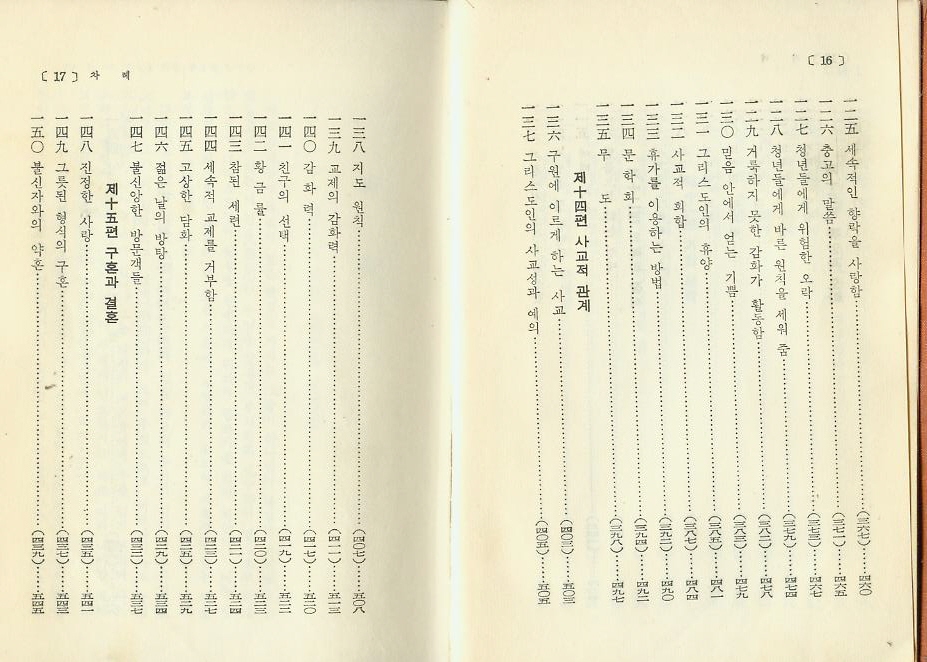 〔 16 〕
一二五 세속적인 향락을 사랑함 (三六七) 四六〇
一二六 충고의 말씀 (三七一) 四六五
一二七 청년들에게 위험한 오락 (三七三) 四六七
一二八 청년들에게 바른 원칙을 세워 줌 (三七九) 四七四
一二九 거룩하지 못한 감화가 활동함 (三八一) 四七六
一三〇 믿음 안에서 얻는 기쁨 (三八三) 四七九
一三一 그리스도인의 휴양 (三八五) 四八一
一三二 사교적 회합 (三八七) 四八四
一三三 휴가를 이용하는 방법 (三九二) 四九〇
一三四 문학회 (三九四) 四九二
一三五 무도 (三九八) 四九七
제十四편 사교적 관계
一三六 구원에 이르게 하는 사교 (四〇三) 五〇三
一三七 그리스도인의 사교성과 예의 (四〇五) 五〇五
〔 17 〕 차례
一三八 지도 원칙 (四〇七) 五〇八
一三九 교제의 감화력 (四一一) 五一三
一四〇 감화력 (四一七) 五二〇
一四一 친구의 선택 (四一九) 五二二
一四二 황금률 (四二〇) 五二三
一四三 참된 세련 (四二一) 五二四
一四四 세속적 교제를 거부함 (四二三) 五二七
一四五 고상한 담화 (四二五) 五二九
一四六 젊은 날의 방탕 (四二九) 五三四
一四七 불신앙한 방문객들 (四三一) 五三七
제十五편 구혼과 결혼
一四八 진정한 사랑 (四三五) 五四一
一四九 그릇된 형식의 구혼 (四三七) 五四三
一五〇 불신자와의 약혼 (四三九) 五四五